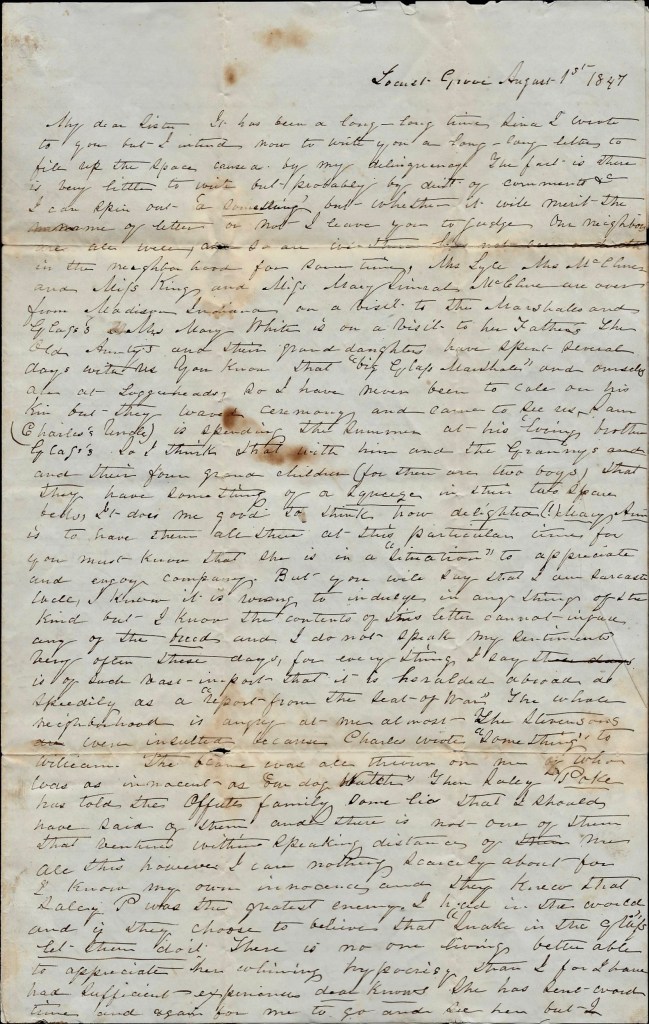 Locust Grove August 1st 1847
My dear Sister It has been a long-long time, since I wrote
to you but I intend now to write you a long-long letter to
file up the space caused by my delinquency The fact is there
is very little to write but probably by dint of comments &c
I can spin out "a something" but whether it will merit the
name of letter or not I leave you to judge Our neighbors
are all well, so are we
in the neighborhood for some time, Mrs Lyle Mrs McClure
and Miss King and Miss Mary McClure are over
from Madison Indiana on a visit to the Marshalls and
Glass's Mrs Mary White is on a visit to her Father, The
Old Aunty's and their grand daughters have spent several
days with us You know that "big Glass Marshall" and ourselves
are at Loggerheads, so I have never been to call on his
Kin but they waved ceremony and came to see us, Sam
(Charles's Uncle) is spending the summer at his living brother
Glass's So I think that with him and the Granny's and
and their four grand children (for there are two boys) that
they have something of a squeeze in their two spare
beds, It does me good to think how delighted (!) Mary Ann
is to have them all there at this particular time for
you must know that she is in a "situation" to appreciate
and enjoy company. But you will say that I am sarcastic
Well, I know it is wrong to indulge in any things of the
kind but I know the contents of this letter cannot injure
any of the breed and I do not speak my sentiments
very often these days, for every thing I say these days
is of such vast import that it is heralded abroad as
speedily as a "report from the Seat of War" The whole
neighborhood is angry at me almost The Stevensons
are were insulted because Charles wrote "something" to
William. The blame was all thrown on me who
was as innocent as Our dog Watch" Then Saley Poke
has told the Offutts family some lie that I should
have said of them and there is not one of them
that ventures within speaking distance of me
All this however I care nothing scarcely about for
I know my own innocence, and they knew that
Saley P was the greatest enemy I had in the world
and if they choose to believe that "Snake in the grass"
let them do it There is no one living better able
to appreciate her whining hypocrisy than I for I have
had sufficient experience dear knows She has sent word
time and again for me to go and see her but I